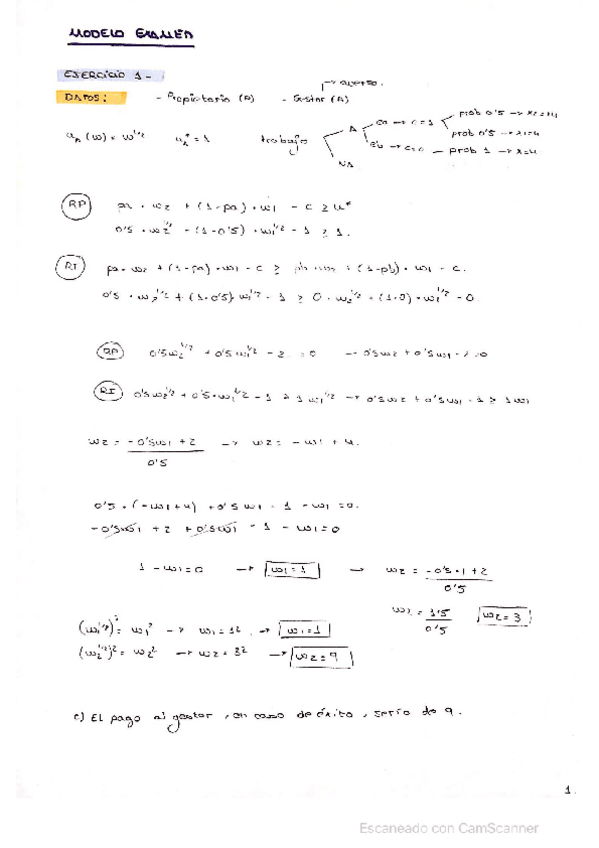 MODELO EXAMEN
EJERCICIO 1-
→ averso.
DATOS: - Propietario (A) - Gestor (A)
u_A(w) = w^1/2 u_A* = 1 trabajo
A NA
ea → c=1 prob 0'5 →
prob 0'5 → x1=4
eb → c=0 → prob 1 → x=4
RP pa · w2 + (1-pa) · w1 - c ≥ u*
0'5 · w2^1/2 + (1-0'5) · w1^1/2 - 1 ≥ 1.
RI pa · w2 + (1-pa) · w1 - c ≥ pb · w2 + (1-pb) · w1 - c.
0'5 · w2^1/2 + (1-0'5) · w1^1/2 - 1 ≥ 0 · w2^1/2 + (1-0) · w1^1/2 - 0.
RP 0'5w2^1/2 + 0'5w1^1/2 - 2 = 0 → 0'5w2 + 0'5w1 - 2 = 0
RI 0'5w2^1/2 + 0'5·w1^1/2 - 1 ≥ 1w1^1/2 → 0'5w2 + 0'5w1 - 1 ≥ 1w1
w2 = -0'5w1 + 2 → w2 = -w1 + 4.
0'5
0'5 · (-w1+4) + 0'5w1 - 1 - w1 = 0.
-0'5w1 + 2 + 0'5w1 - 1 - w1 = 0
1 - w1 = 0 → w1 = 1 → w2 = -0'5·1 + 2
0'5
w2 = 1'5 w2 = 3
0'5
(w1^1/2)² = w1² → w1 = 1² → w1 = 1
(w2^1/2)² = w2² → w2 = 3² → w2 = 9
c) El pago al gestor, en caso de éxito, sería de 9.
1.
Escaneado con CamScanner